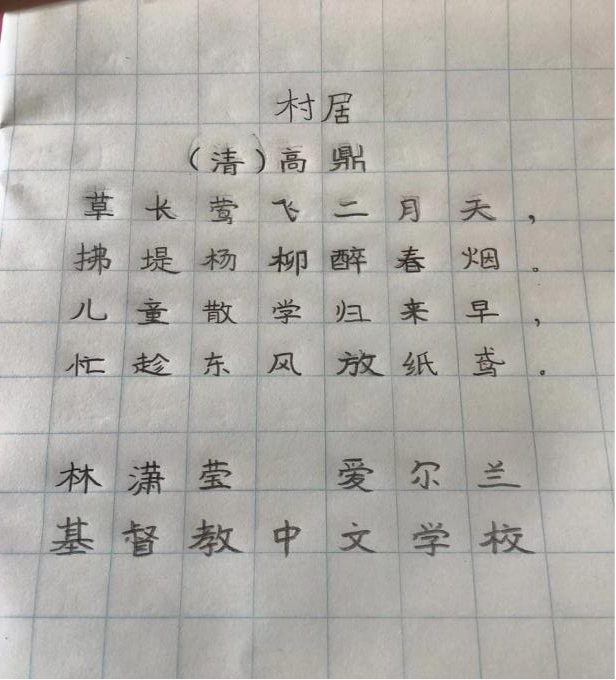 村居
（清）高鼎
草长莺飞二月天，
拂堤杨柳醉春烟。
儿童散学归来早，
忙趁东风放纸鸢。
林潇莹 爱尔兰
基督教中文学校